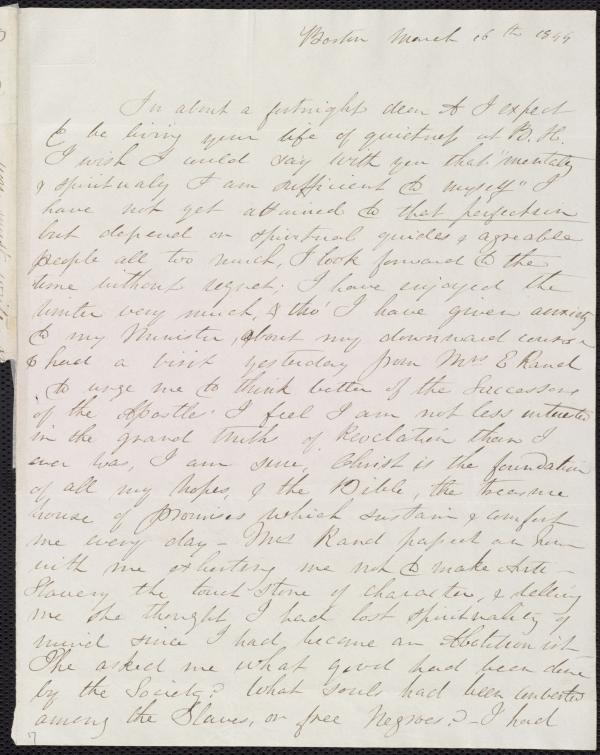 Boston March 16th 1844
In about a fortnight dear A I expect
to be living your life of quietness at B. H.
I wish I could say with you that "mentally
& spiritualy I am sufficient to myself" I
have not yet attained to that perfection
but depend on spiritual guides & agreable
people all too much, I look forward to the
time without regret; I have enjoyed the
winter very much, & tho' I have given anxiety
to my Minister, about my downward course
& had a visit yesterday from Mrs E Rand
to urge me to think better of the Successors
of the Apostles' I feel I am not less interested
in the grand truths of Revelation than I
ever was, I am sure, Christ is the foundation
of all my hopes, & the Bible, the treasure
house of promises which sustain & comfort
me every day - Mrs Rand passed an hour
with me exhorting me not to make Anti-
Slavery the touch stone of character, & telling
me she thought I had lost spirituality of
mind since I had become an Abolitionist
She asked me what good had been done
by the Society? What souls had been converted
among the Slaves, or free Negroes? - I had